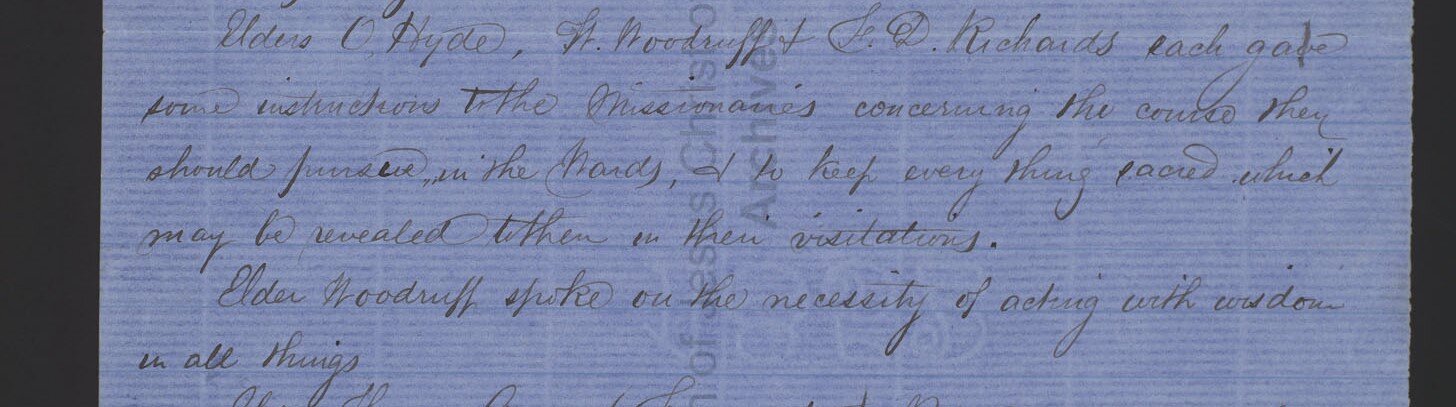 Elders O, Hyde, W. Woodruff & F. D. Richards each gave
some instructions to the Missionaries concerning the course they
should pursue, in the Wards, & to keep every thing sacred which
may be revealed to them in their visitations.
Elder Woodruff spoke on the necessity of acting with wisdom
in all things